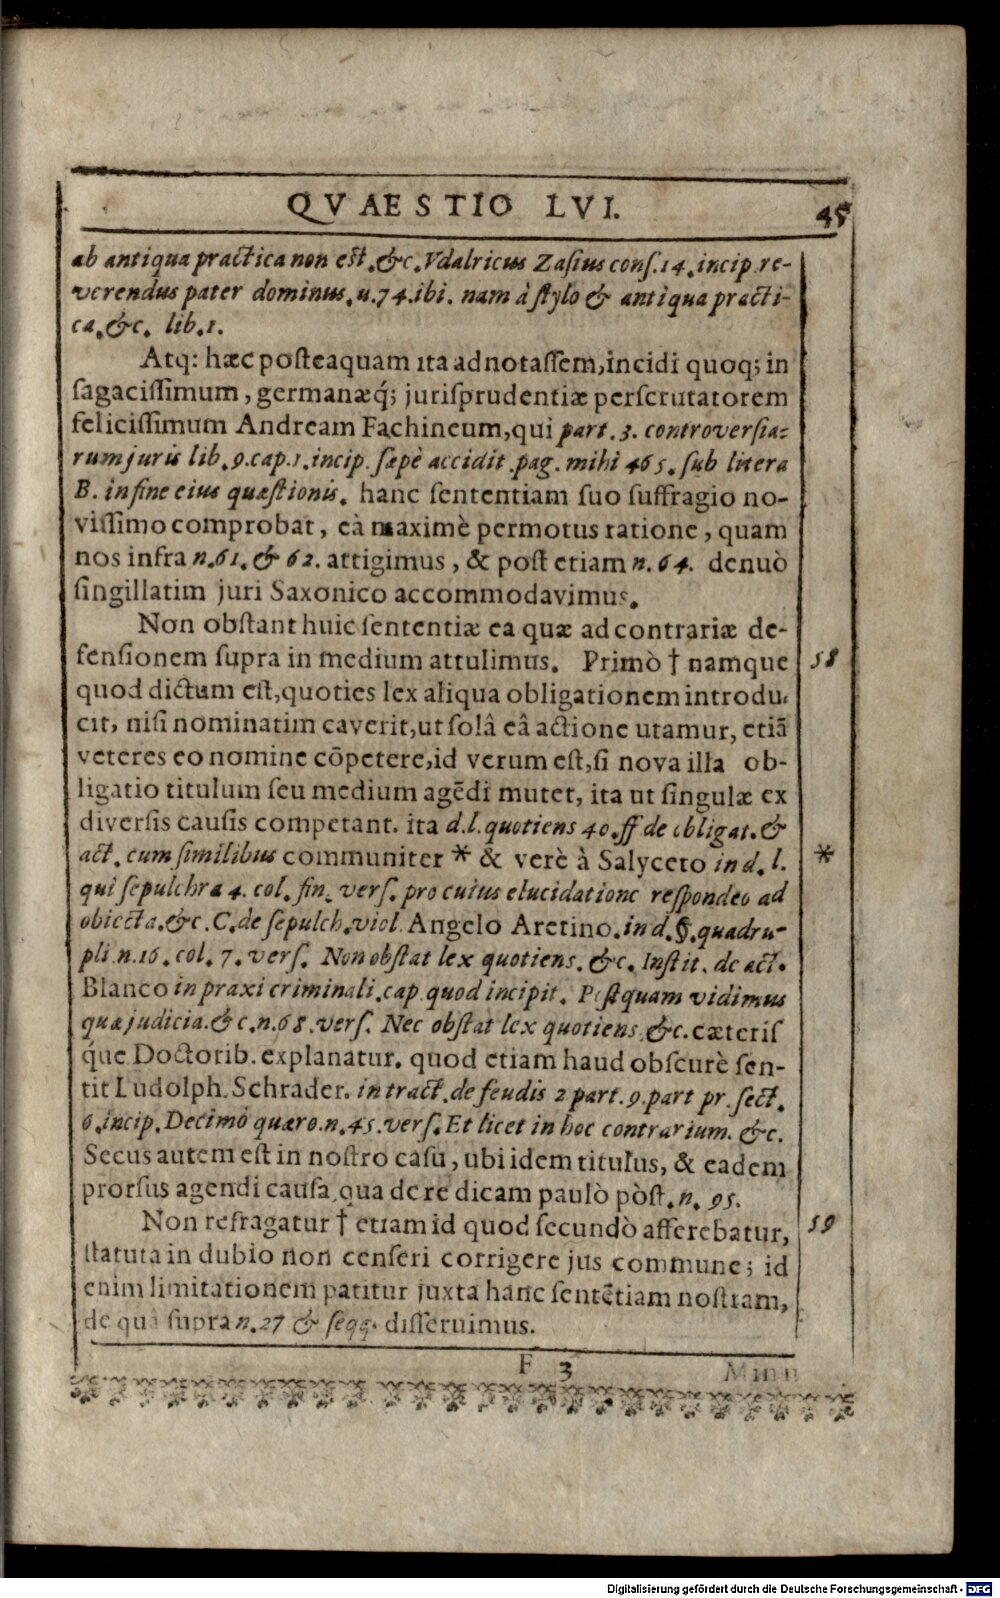 QVAESTIO LVI. 45
ab antiqua practica non est. &c. Vdalricus Zasius cons. 14. incip. re-
verendus pater dominus. n. 74. ibi. nam à stylo & antiqua practi-
ca. &c. lib. 1.
Atq; hæc posteaquam ita adnotassem, incidi quoq; in
sagacissimum, germanæq́; jurisprudentiæ perscrutatorem
felicissimum Andream Fachineum, qui part. 3. controversia-
rum juris lib. 9. cap. 1. incip. sæpè accidit. pag. mihi 465. sub litera
B. in fine eius quæstionis. hanc sententiam suo suffragio no-
vissimo comprobat, eà maximè permotus ratione, quam
nos infra n. 61. & 62. attigimus, & post etiam n. 64. denuò
singillatim juri Saxonico accommodavimus.
Non obstant huic sententiæ ea quæ ad contrariæ de-
fensionem supra in medium attulimus. Primò † namque 58
quod dictum est, quoties lex aliqua obligationem introdu-
cit, nisi nominatim caverit, ut solâ eâ actione utamur, etiã
veteres eo nomine cõpetere, id verum est, si nova illa ob-
ligatio titulum seu medium agẽdi mutet, ita ut singulæ ex
diversis causis competant. ita d. l. quotiens 40. ff de obligat. &
act. cum similibus communiter * & verè à Salyceto in d. l. *
qui sepulchra 4. col. fin. vers. pro cuius elucidatione respondeo ad
obiecta. &c. C. de sepulch. viol. Angelo Aretino. in d. §. quadru-
pli. n. 16. col. 7. vers. Non obstat lex quotiens. &c. Instit. de act.
Blanco in praxi criminali. cap. quod incipit. Postquam vidimus
quæ judicia. &c. n. 68. vers. Nec obstat lex quotiens. &c. cæteris
q́ue Doctorib. explanatur. quod etiam haud obscurè sen-
tit Ludolph. Schrader. in tract. de feudis 2 part. 9. part pr. sect.
6. incip. Decimò quæro. n. 45. vers. Et licet in hoc contrarium. &c.
Secus autem est in nostro casu, ubi idem titulus, & eadem
prorsus agendi causa, qua de re dicam paulò pòst. n. 95.
Non refragatur † etiam id quod secundò afferebatur, 59
statuta in dubio non censeri corrigere jus commune; id
enim limitationem patitur juxta hanc sentẽtiam nostram,
de qua supra n. 27 & seqq. disseruimus.
F 3 Minu
Digitalisierung gefördert durch die Deutsche Forschungsgemeinschaft - DFG